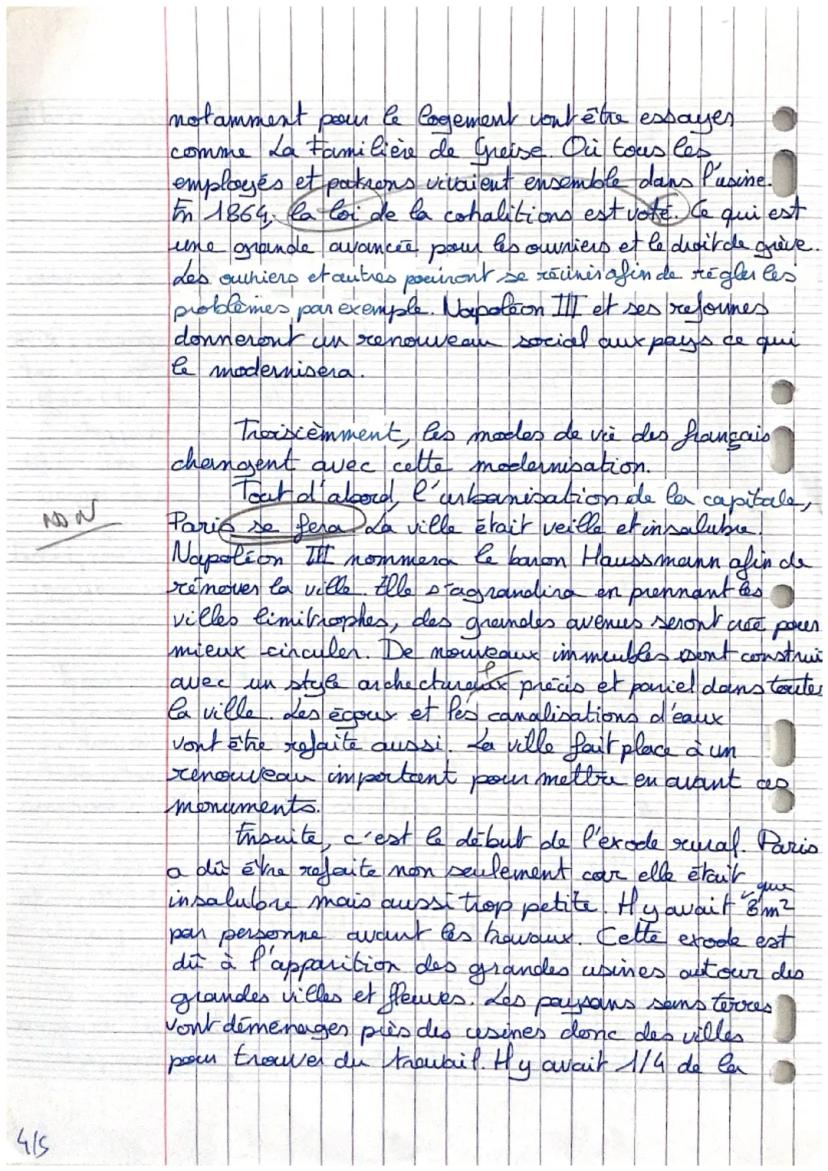 notamment pour le logement vont être essayer
comme La Familière de Greise. Où tous les
employés et patrons vivaient ensemble dans l'usine.
En 1864, la loi de la cohalitions est voté. Ce qui est
une grande avancée pour les ouvriers et le droit de grève.
Les ouvriers et autres pouront se réunir afin de régler les
problèmes par exemple. Napoléon III et ses reformes
donneront un renouveau social aux pays ce qui
le modernisera.
Troisièmment, les modes de vie des français
changent avec cette modernisation.
Tout d'abord, l'urbanisation de la capitale,
NON
Paris se fera. La ville était veille et insalubre.
Napoléon III nommera le baron Haussmann afin de
rénover la ville. Elle s'agrandira en prennant les
villes limitrophes, des grandes avenues seront créé pour
mieux circuler. De nouveaux immeubles sont construi
avec un style archectureaux précis et pariel dans toutes
la ville. Les égoux et les canalisations d'eaux
vont être refaite aussi. La ville fait place à un
renouveau important pour mettre en avant ces
monuments.
Ensuite, c'est le début de l'exode rural. Paris
a dû être refaite non seulement car elle était
insalubre mais aussi trop petite. Il y avait que 3m²
par personne avant les travaux. Cette exode est
dû à l'apparition des grandes usines autour des
grandes villes et fleuves. Les paysans sans terres
vont déménages près des usines donc des villes
pour trouver du travail. Il y avait 1/4 de la
4/5